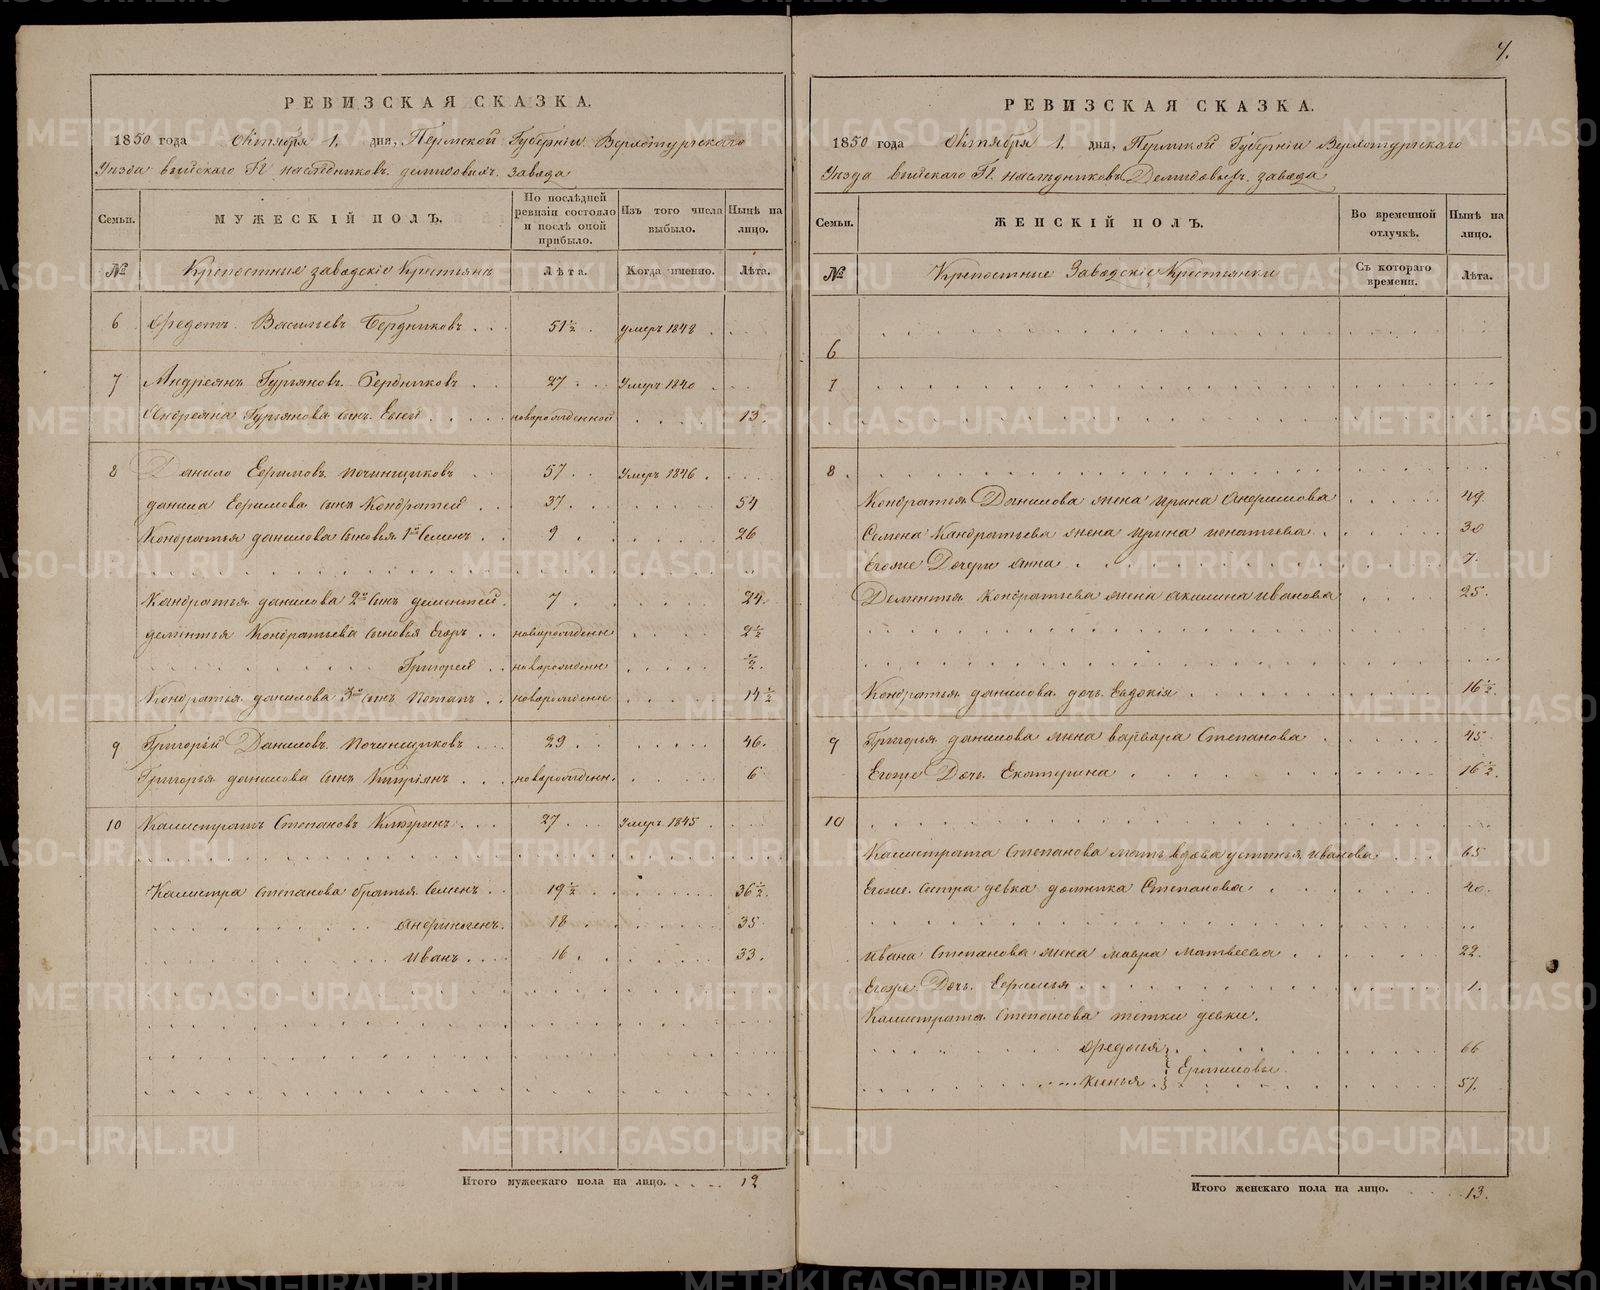 7.
РЕВИЗСКАЯ СКАЗКА.
1850 года Октября 1. дня, Пермской Губерніи Верхотурскаго
Уѣзда выйскаго Гг наслѣдниковъ демидовыхъ завода
Семьи.
МУЖЕСКІЙ ПОЛЪ.
По послѣдней ревизіи состояло и послѣ оной прибыло.
Изъ того числа выбыло.
Нынѣ на лицо.
№
Крепостные заводскіе Крестьяне
Лѣта.
Когда именно.
Лѣта.
6 Федотъ Васильевъ Бердниковъ 51½ умеръ 1848
7 Андреянъ Гурьяновъ Бердниковъ 27 Умеръ 1840
Андреяна Гурьянова сынъ Евсей новорожденной 13
8 Данило Ефимовъ починщиковъ 57 Умеръ 1846
данила Ефимова сынъ Кондратей 37 54
Кондратья данилова сыновья 1й Семенъ 9 26
Кондратья данилова 2й сынъ дементей 7 24
дементья Кондратьева сыновья Егоръ новорожденн 2½
Григорей новорожденн ½
Кондратья данилова 3й сынъ Потапъ новорожденн 14½
9 Григорій Даниловъ починщиковъ 29 46
Григорья данилова сынъ Кипріянъ новорожденн. 6
10 Калистратъ Степановъ Клюкинъ 27 Умеръ 1845
Калистра степанова братья Семенъ 19½ 36½
андриянъ 18 35
иванъ 16 33
Итого мужескаго пола на лицо. 12
РЕВИЗСКАЯ СКАЗКА.
1850 года Октября 1. дня, Пермской Губерніи Верхотурскаго
Уѣзда выйскаго Гг. наслѣдниковъ Демидовыхъ завода
Семьи.
ЖЕНСКІЙ ПОЛЪ.
Во временной отлучкѣ.
Нынѣ на лицо.
№
Крепостные Заводскіе Крестьянки
Съ котораго времени.
Лѣта.
6
7
8
Кондратья Данилова жена ирина 49
Семена Кондратьева жена ирина игнатьева 30
Егоже Дочери анна 7
Дементья Кондратьева жена акилина иванова 25
Кондратья данилова дочь Евдокія 16½
9 Григорья данилова жена варвара Степанова 45
Егоже Дочь Екатерина 16½
10
Калистрата степанова мать вдова устинья иванова 65
Егоже Сестра девка домника Степанова 40
ивана Степанова жена мавра матвеева 22
Егоже Дочь Ефимья 1
Калистрата Степанова тетки девки.
Федосья 66
Ермиловы
57
Итого женскаго пола на лицо. 13.
METRIKI.GASO-URAL.RU